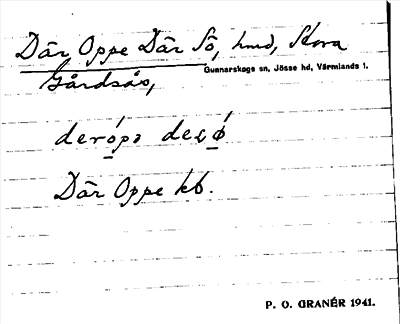 Där Oppe Där Sö, hmd, Stora
Gunnarskogs sn, Jösse hd, Värmlands l.
Gårdsås,
derópə deɛ ǿ
Där Oppe kb.
P. O. GRANÉR 1941.